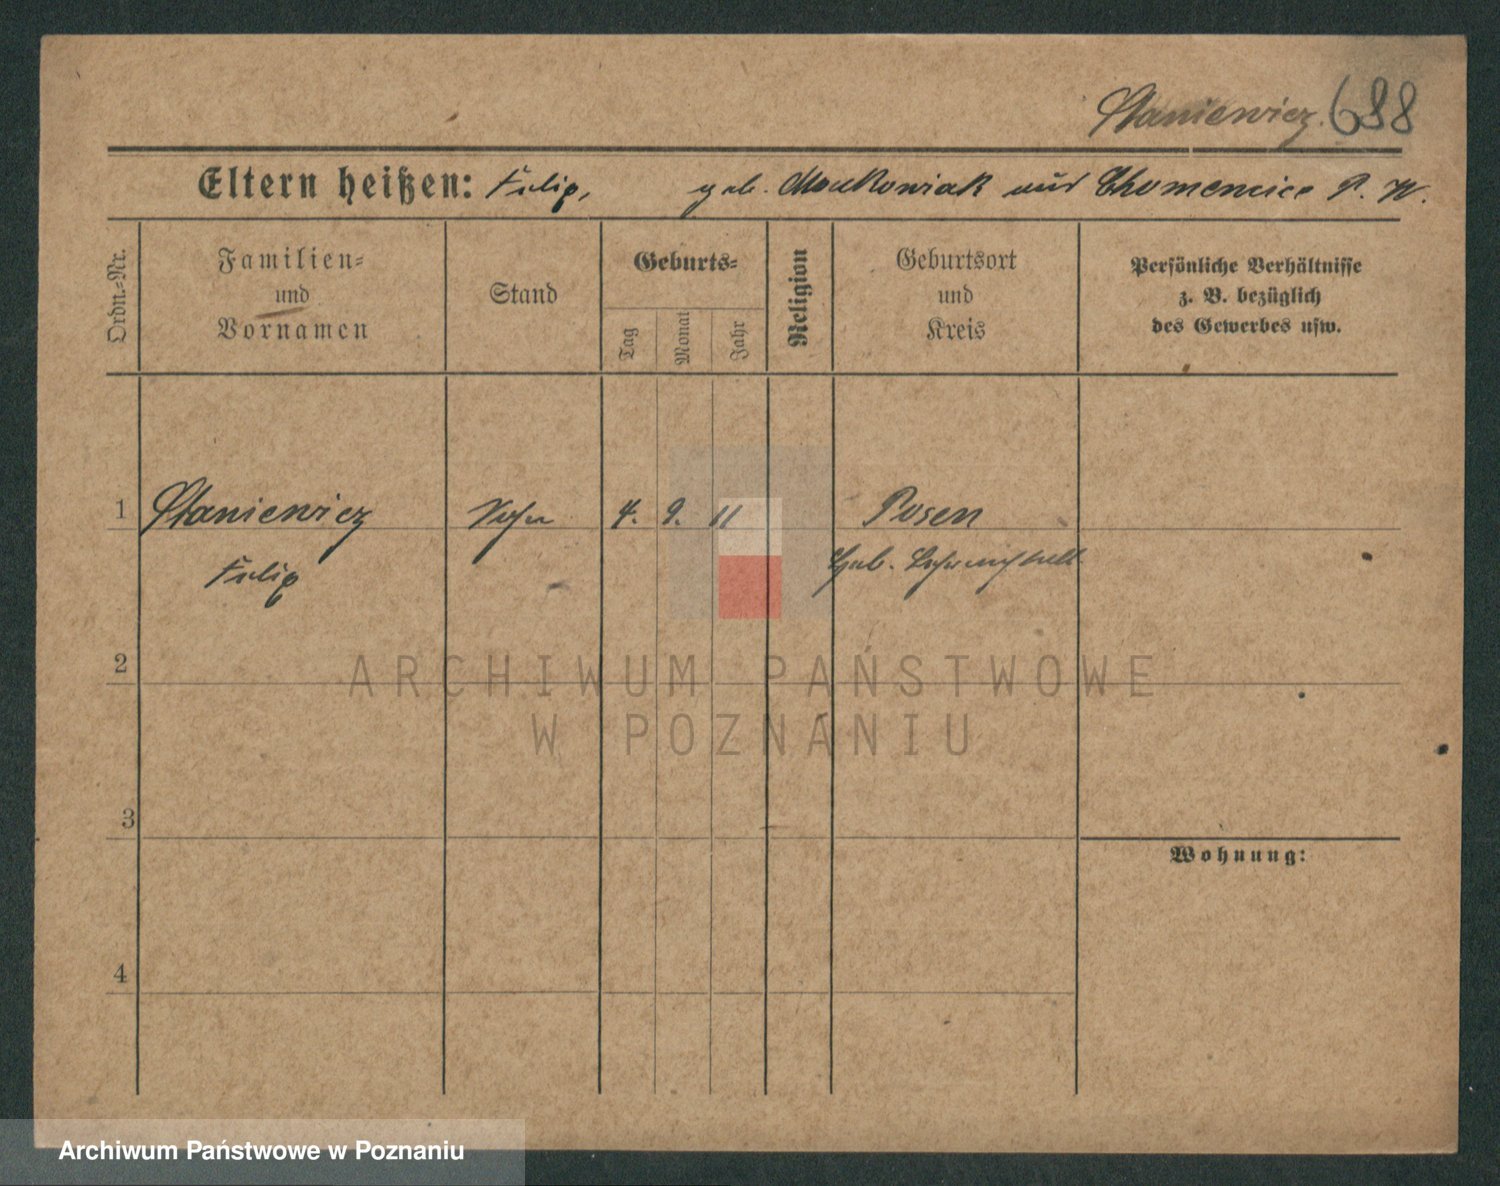 Staniewicz. 688
Eltern heißen: Felix, geb. Maćkowiak aus Chomencice P. W.
Ordn.-Nr.
Familien-
und
Vornamen
Stand
Geburts-
Tag
Monat
Jahr
Religion
Geburtsort
und
Kreis
Persönliche Verhältnisse
z. B. bezüglich
des Gewerbes usw.
1 Staniewicz Sohn 4. 9. 11 Posen
Felix Geb.
2
3
Wohnung:
4
ARCHIWUM PAŃSTWOWE
W POZNANIU
Archiwum Państwowe w Poznaniu